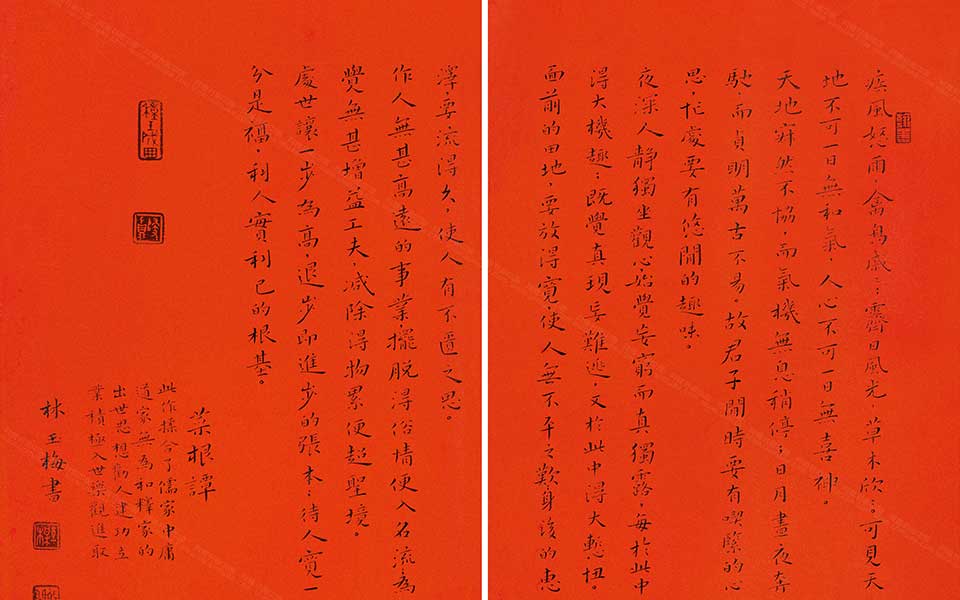 疾風怒雨，禽鳥戚々；霽日風光，草木欣々。可見天
地不可一日無和氣，人心不可一日無喜神。
天地寂然不協，而氣機無息稍停；日月晝夜奔
馳而貞明萬古不易。故君子閒時要有喫緊的心
思，忙處要有悠閒的趣味。
夜深人靜獨坐觀心，始覺妄窮而真獨露，每於此中
得大機趣；既覺真現妄難逃，又於此中得大慙忸。
面前的田地，要放得寬，使人無不平之歎；身後的惠
澤，要流得久，使人有不匱之思。
作人無甚高遠的事業，擺脫得俗情便入名流；為
覺無甚增益工夫，減除得物累便超聖境。
處世讓一步為高，退步即進步的張本；待人寬一
分是福，利人實利己的根基。
菜根譚
此作揉合了儒家中庸
道家無為和釋家的
出世思想勸人建功立
業積極入世樂觀進取
林玉梅書